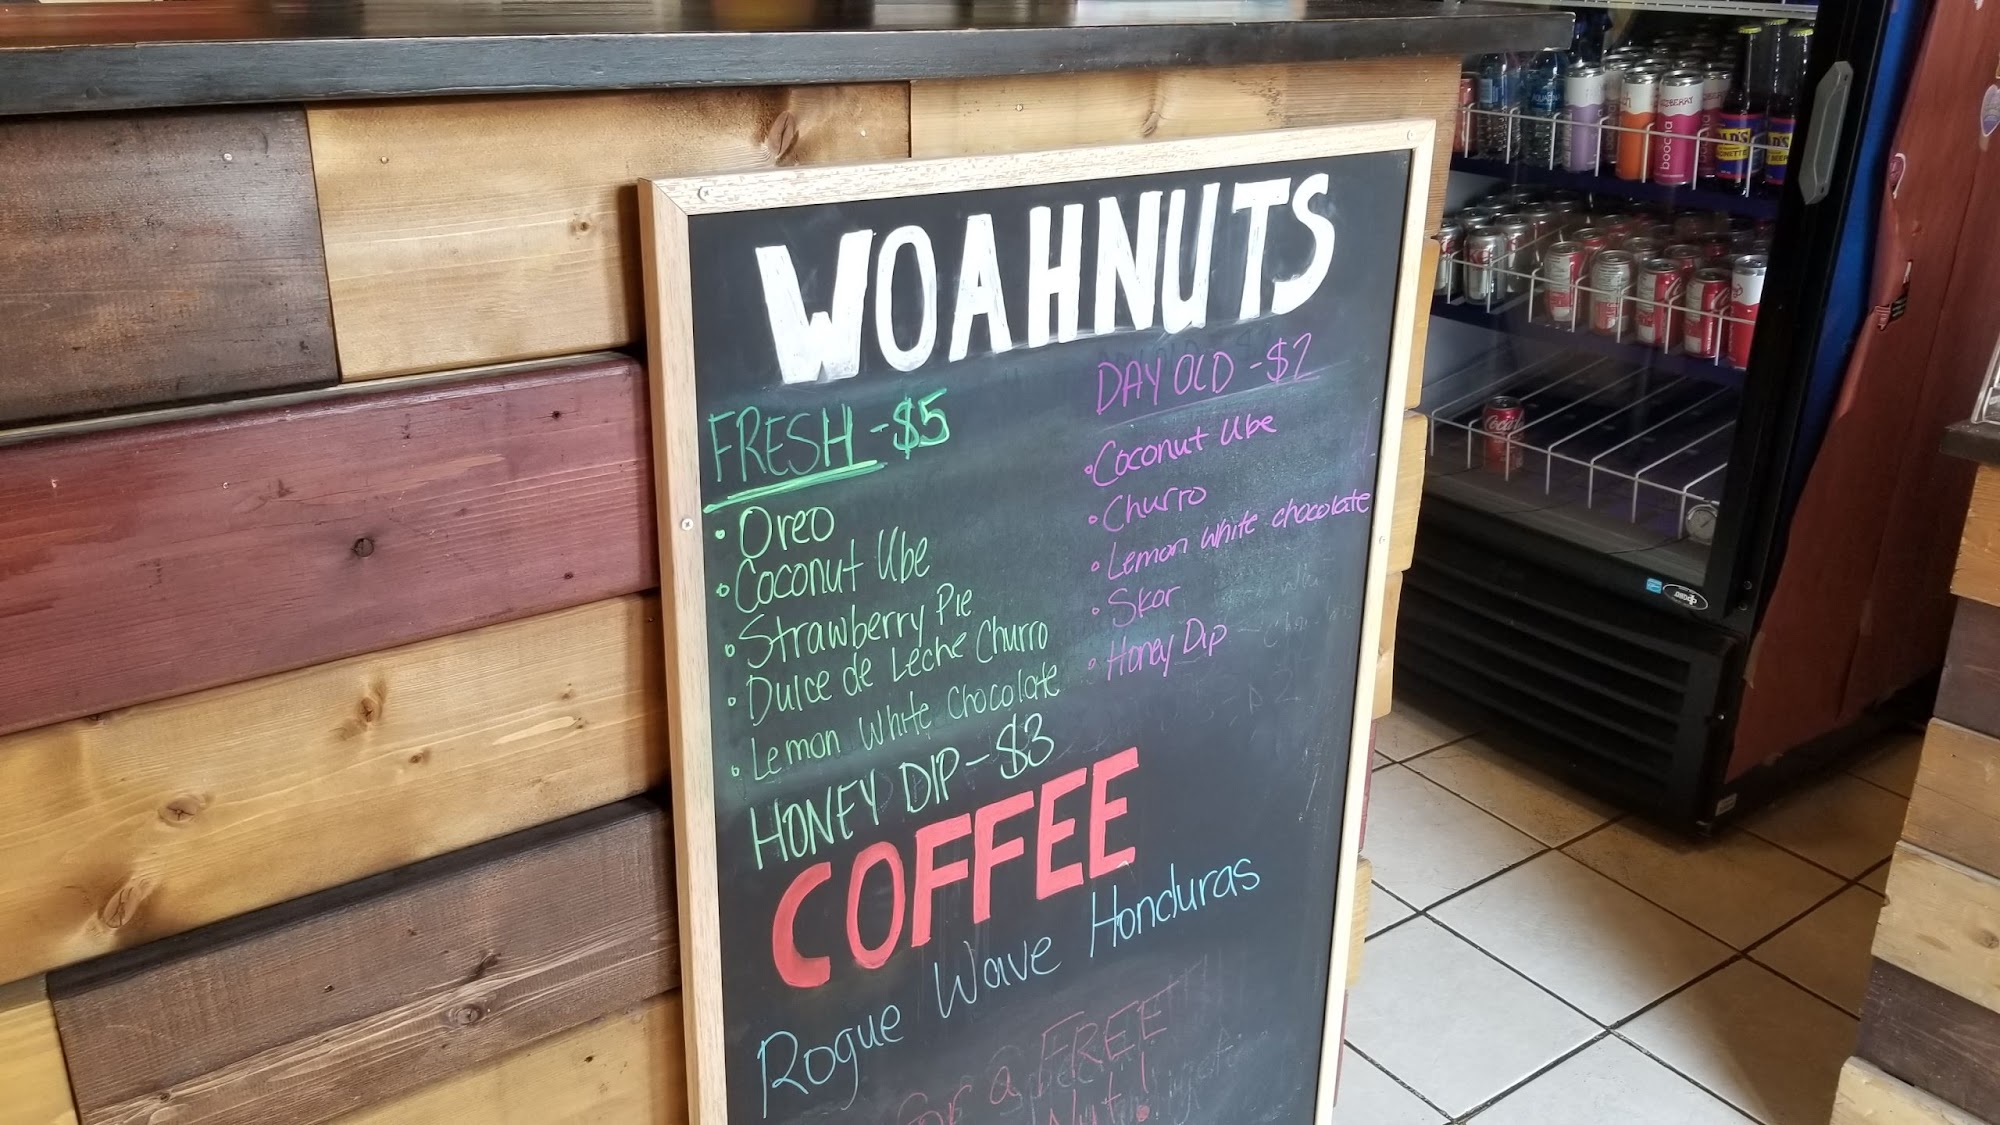 WOAHNUTS
FRESH - $5
• Oreo
• Coconut Ube
• Strawberry Pie
• Dulce de Leche Churro
• Lemon White Chocolate
HONEY DIP - $3
DAY OLD - $2
• Coconut Ube
• Churro
• Lemon White chocolate
• Skor
• Honey Dip
COFFEE
Rogue Wave Honduras
for a FREE
Nut!
boocha
Coca